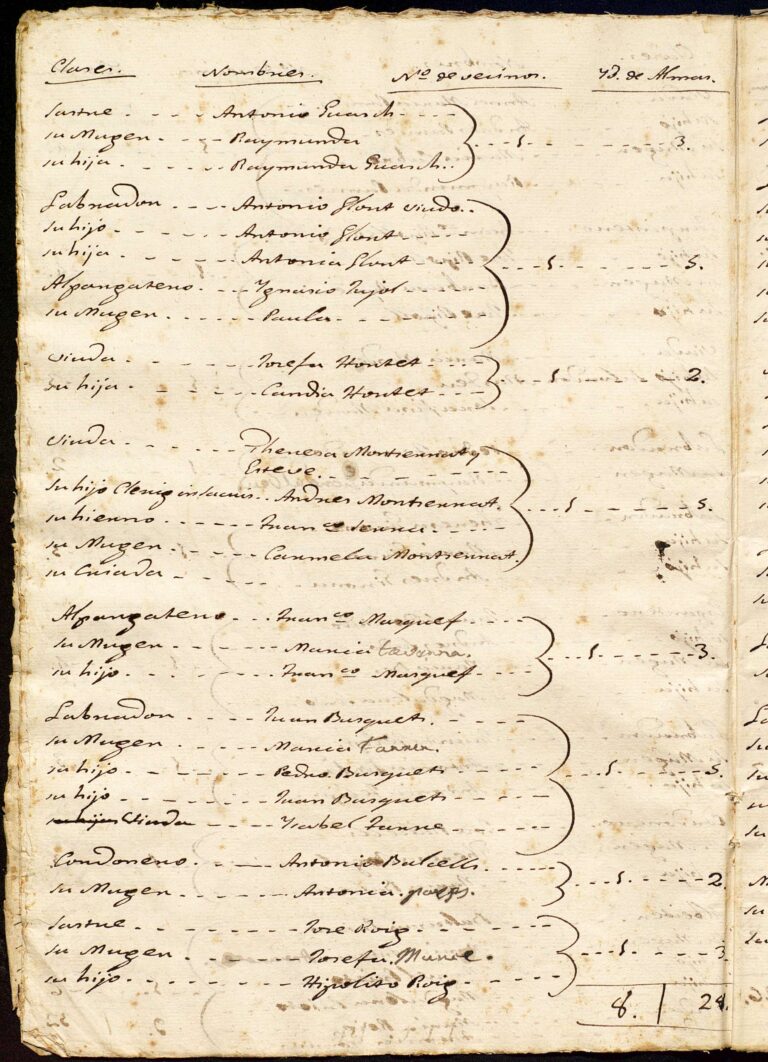 Clases. Nombres. Nº de vecinos. Yd. de Almas.
Sastre Antonio Guasch
su Muger Raymunda 1 3.
su hija Raymunda Guasch
Labrador Antonio Font viudo
su hijo Antonio Font
su hija Antonia Font 1 5.
Alpargatero Ygnasio Pujol
su Muger Paula
viuda Josefa Hortet
su hija Candia Hortet 1 2.
viuda Theresa Montserrat y
Esteve
su hijo Andres Montserrat 1 5.
su hierno Franco Serra
su Muger Carmela Montserrat
su Criada
Alpargatero Franco Marquef
su Muger Maria 1 3.
su hijo Franco Marquef
Labrador Juan Busquets
su Muger Maria Farrer
su hijo Pedro Busquets 1 5.
su hijo Juan Busquets
Viuda Ysabel
Condonero Antonio Balcells 1 2.
su Muger Antonia
Sastre Jose Roig
su Muger Josefa 1 3
su hijo Hipolito Roig
8. 28.